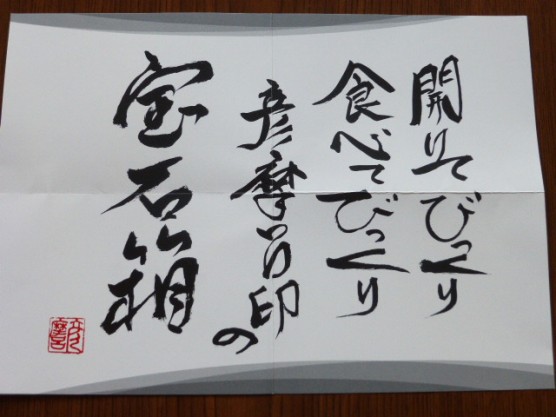 開けてびっくり
食べてびっくり
彦摩呂印の
宝石箱
彦摩呂